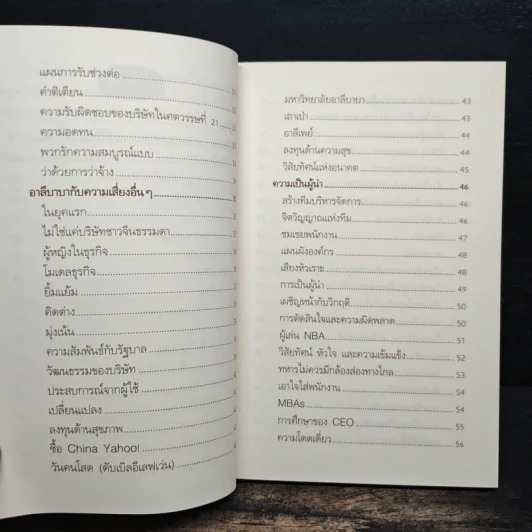 แผนการรับช่วงต่อ
คำติเตียน
ความรับผิดชอบของบริษัทในศตวรรษที่ 21
ความอดทน
พวกรักความสมบูรณ์แบบ
ว่าด้วยการว่าจ้าง
อาลีบาบากับความเสี่ยงอื่นๆ
ในยุคแรก
ไม่ใช่แค่บริษัทชาวจีนธรรมดา
ผู้หญิงในธุรกิจ
โมเดลธุรกิจ
ยิ้มแย้ม
คิดต่าง
มุ่งเน้น
ความสัมพันธ์กับรัฐบาล
วัฒนธรรมของบริษัท
ประสบการณ์จากผู้ใช้
เปลี่ยนแปลง
ลงทุนด้านสุขภาพ
ซื้อ China Yahoo!
วันคนโสด (ดับเบิลอีเลฟเว่น)
มหาวิทยาลัยอาลีบาบา 43
เถาเป่า 43
อาลีเพย์ 44
ลงทุนด้านความสุข 44
วิสัยทัศน์แห่งอนาคต 45
ความเป็นผู้นำ 46
สร้างทีมบริหารจัดการ 46
จิตวิญญาณแห่งทีม 46
ชมเชยพนักงาน 47
แผนผังองค์กร 48
เสียงหัวเราะ 48
การเป็นผู้นำ 49
เผชิญหน้ากับวิกฤติ 50
การตัดสินใจและความผิดพลาด 50
ผู้เล่น NBA 51
วิสัยทัศน์ หัวใจ และความเข้มแข็ง 52
ทหารไม่ควรมีกล้องส่องทางไกล 53
เอาใจใส่พนักงาน 54
MBAs 54
การศึกษาของ CEO 55
ความโดดเดี่ยว 56